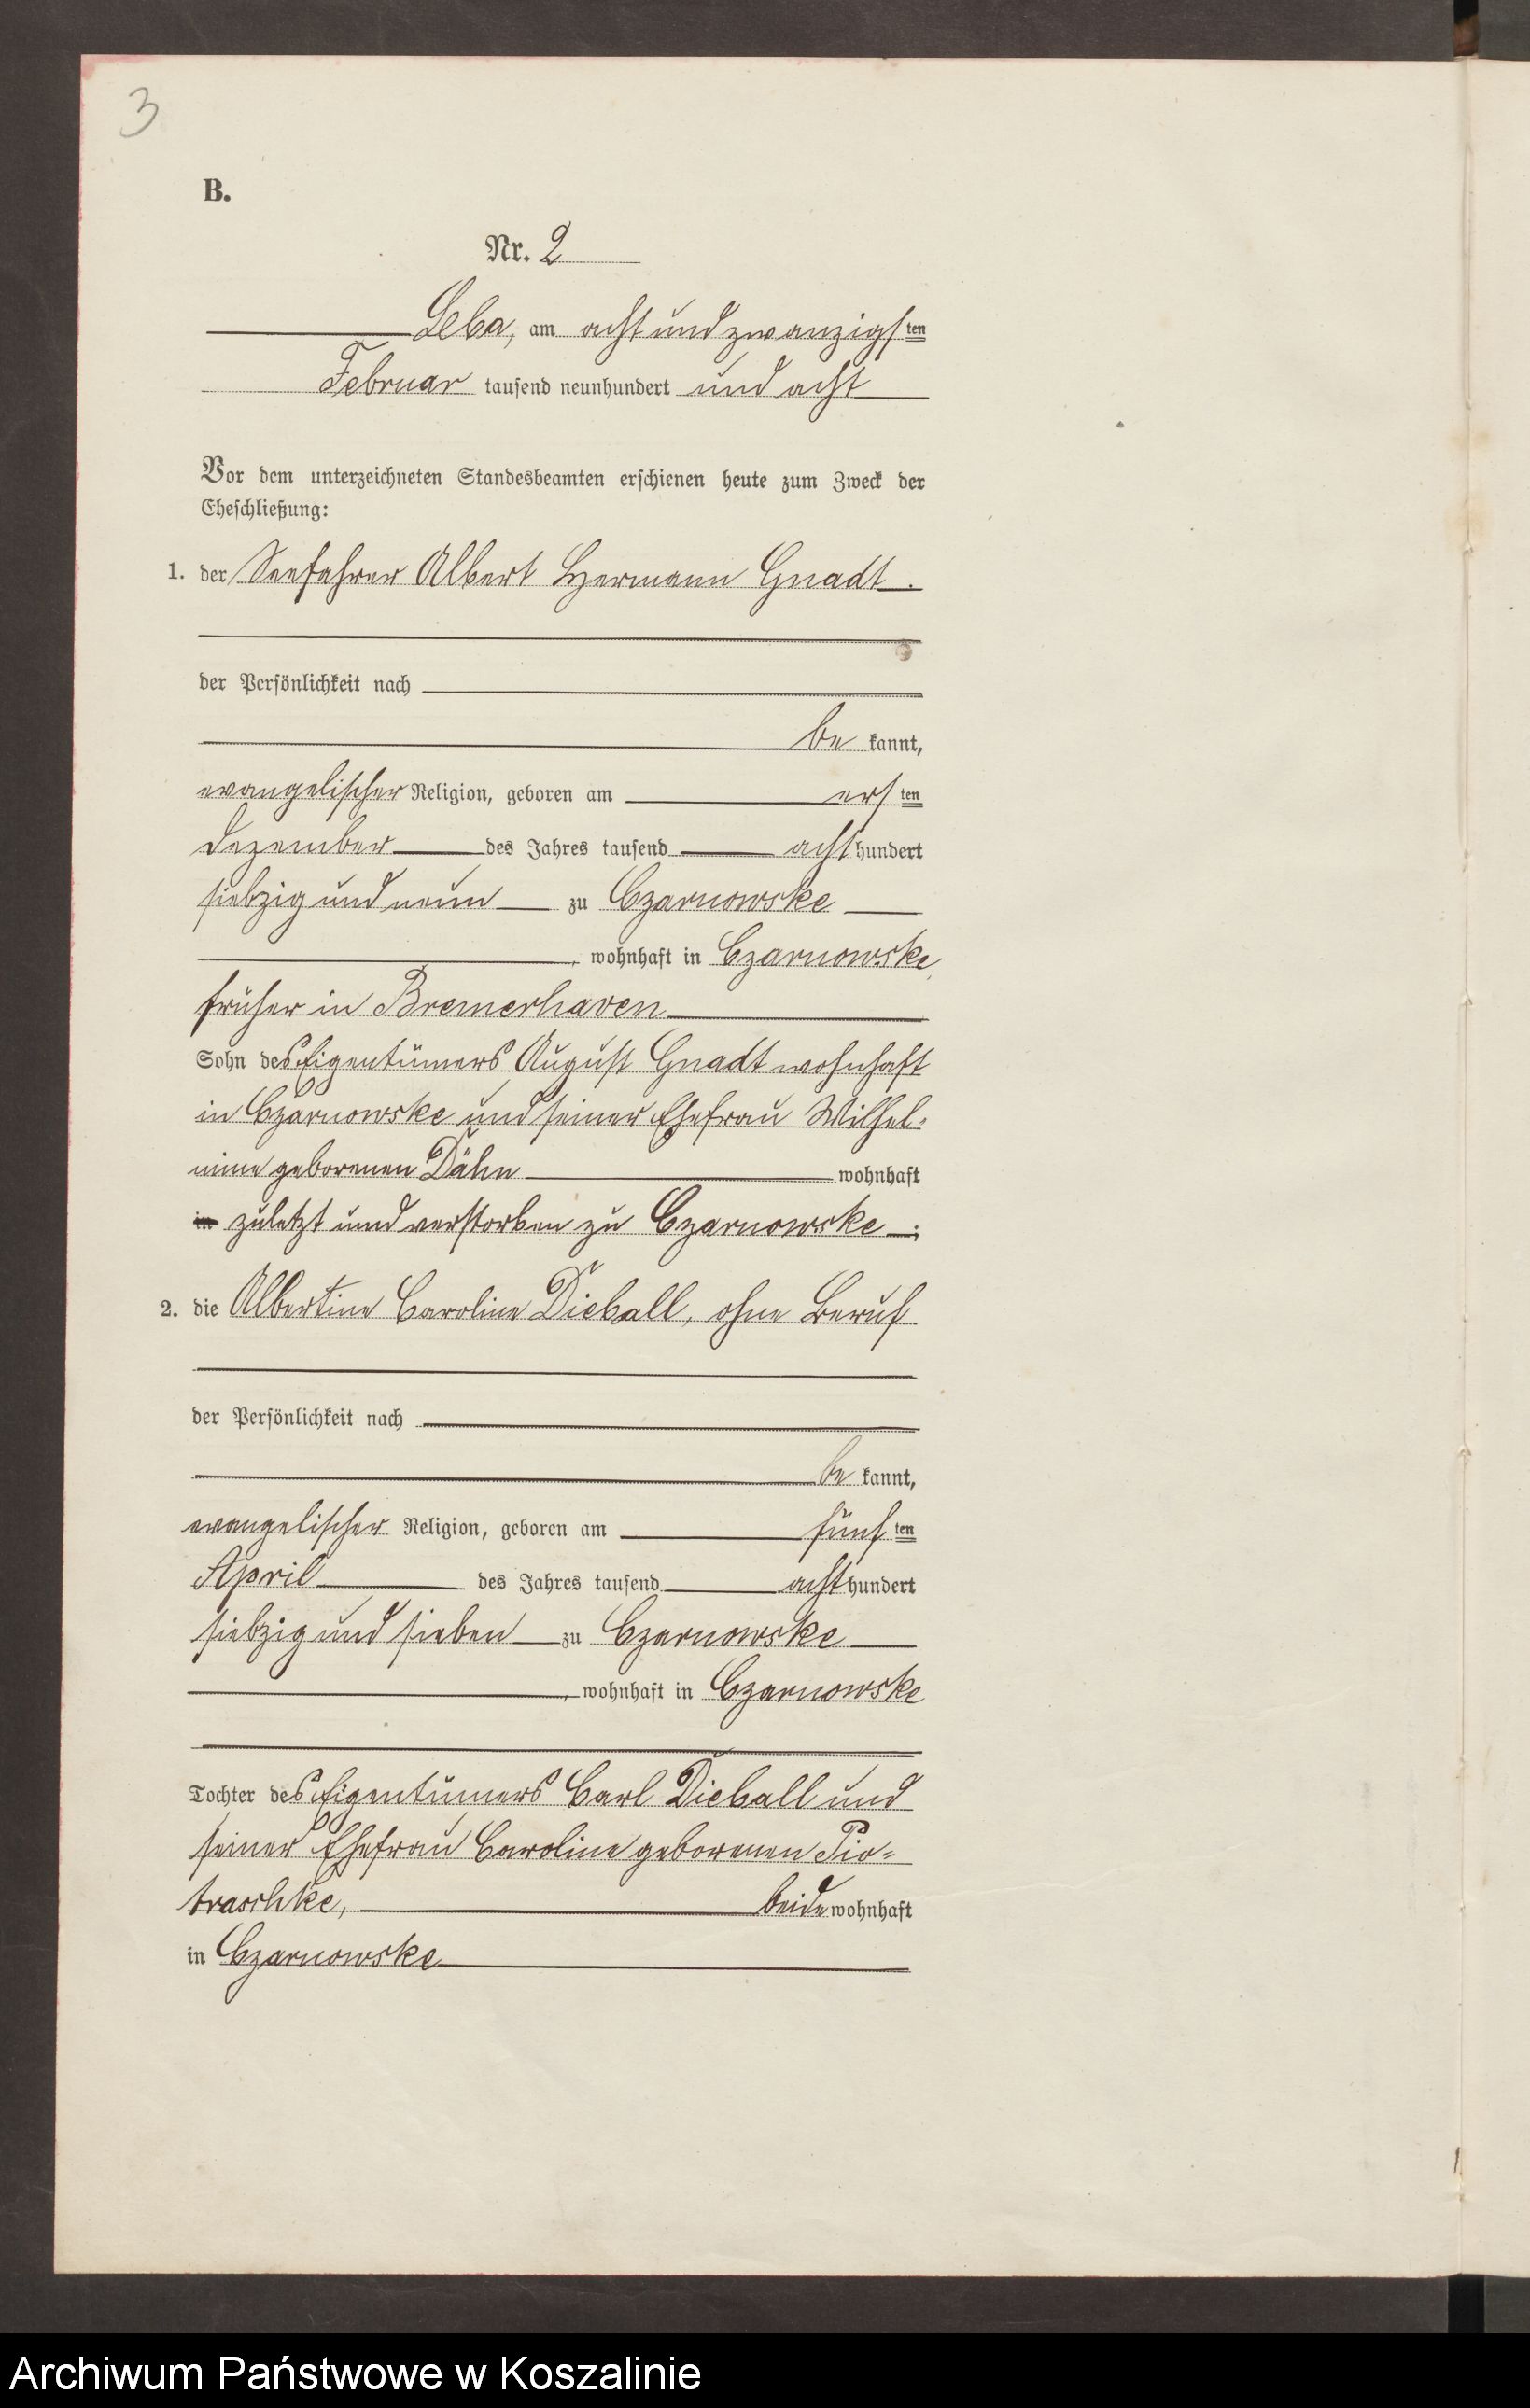 3
B.
Nr. 2
Leba, am acht und zwanzigsten
Februar tausend neunhundert und acht
Vor dem unterzeichneten Standesbeamten erschienen heute zum Zweck der
Eheschließung:
1. der Seefahrer Albert Hermann Gnadt.
der Persönlichkeit nach
be kannt,
evangelischer Religion, geboren am ersten
Dezember des Jahres tausend acht hundert
siebzig und neun zu Czarnowske
, wohnhaft in Czarnowske,
früher in Bremerhaven
Sohn des Eigentümers August Gnadt wohnhaft
in Czarnowske und seiner Ehefrau Wilhel-
mine geborenen Dähn wohnhaft
in zuletzt und verstorben zu Czarnowske ;
2. die Albertine Caroline Dieball, ohne Beruf
der Persönlichkeit nach
be kannt,
evangelischer Religion, geboren am fünften
April des Jahres tausend acht hundert
siebzig und sieben zu Czarnowske
, wohnhaft in Czarnowske
Tochter des Eigentümers Carl Dieball und
seiner Ehefrau Caroline geborenen Pio=
traschke, beide wohnhaft
in Czarnowske
Archiwum Państwowe w Koszalinie